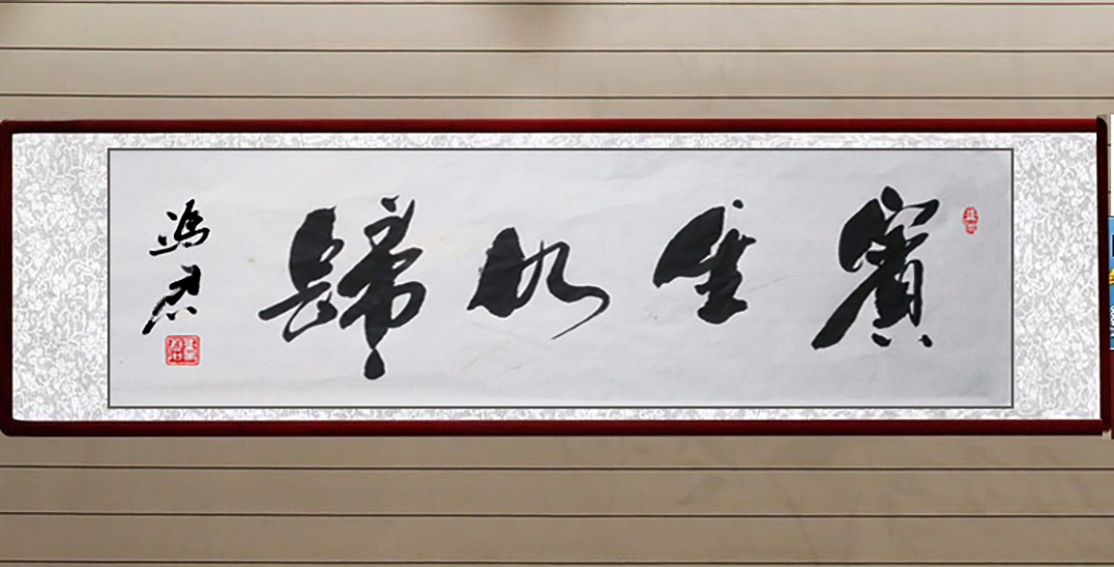 賓至如歸
馮君